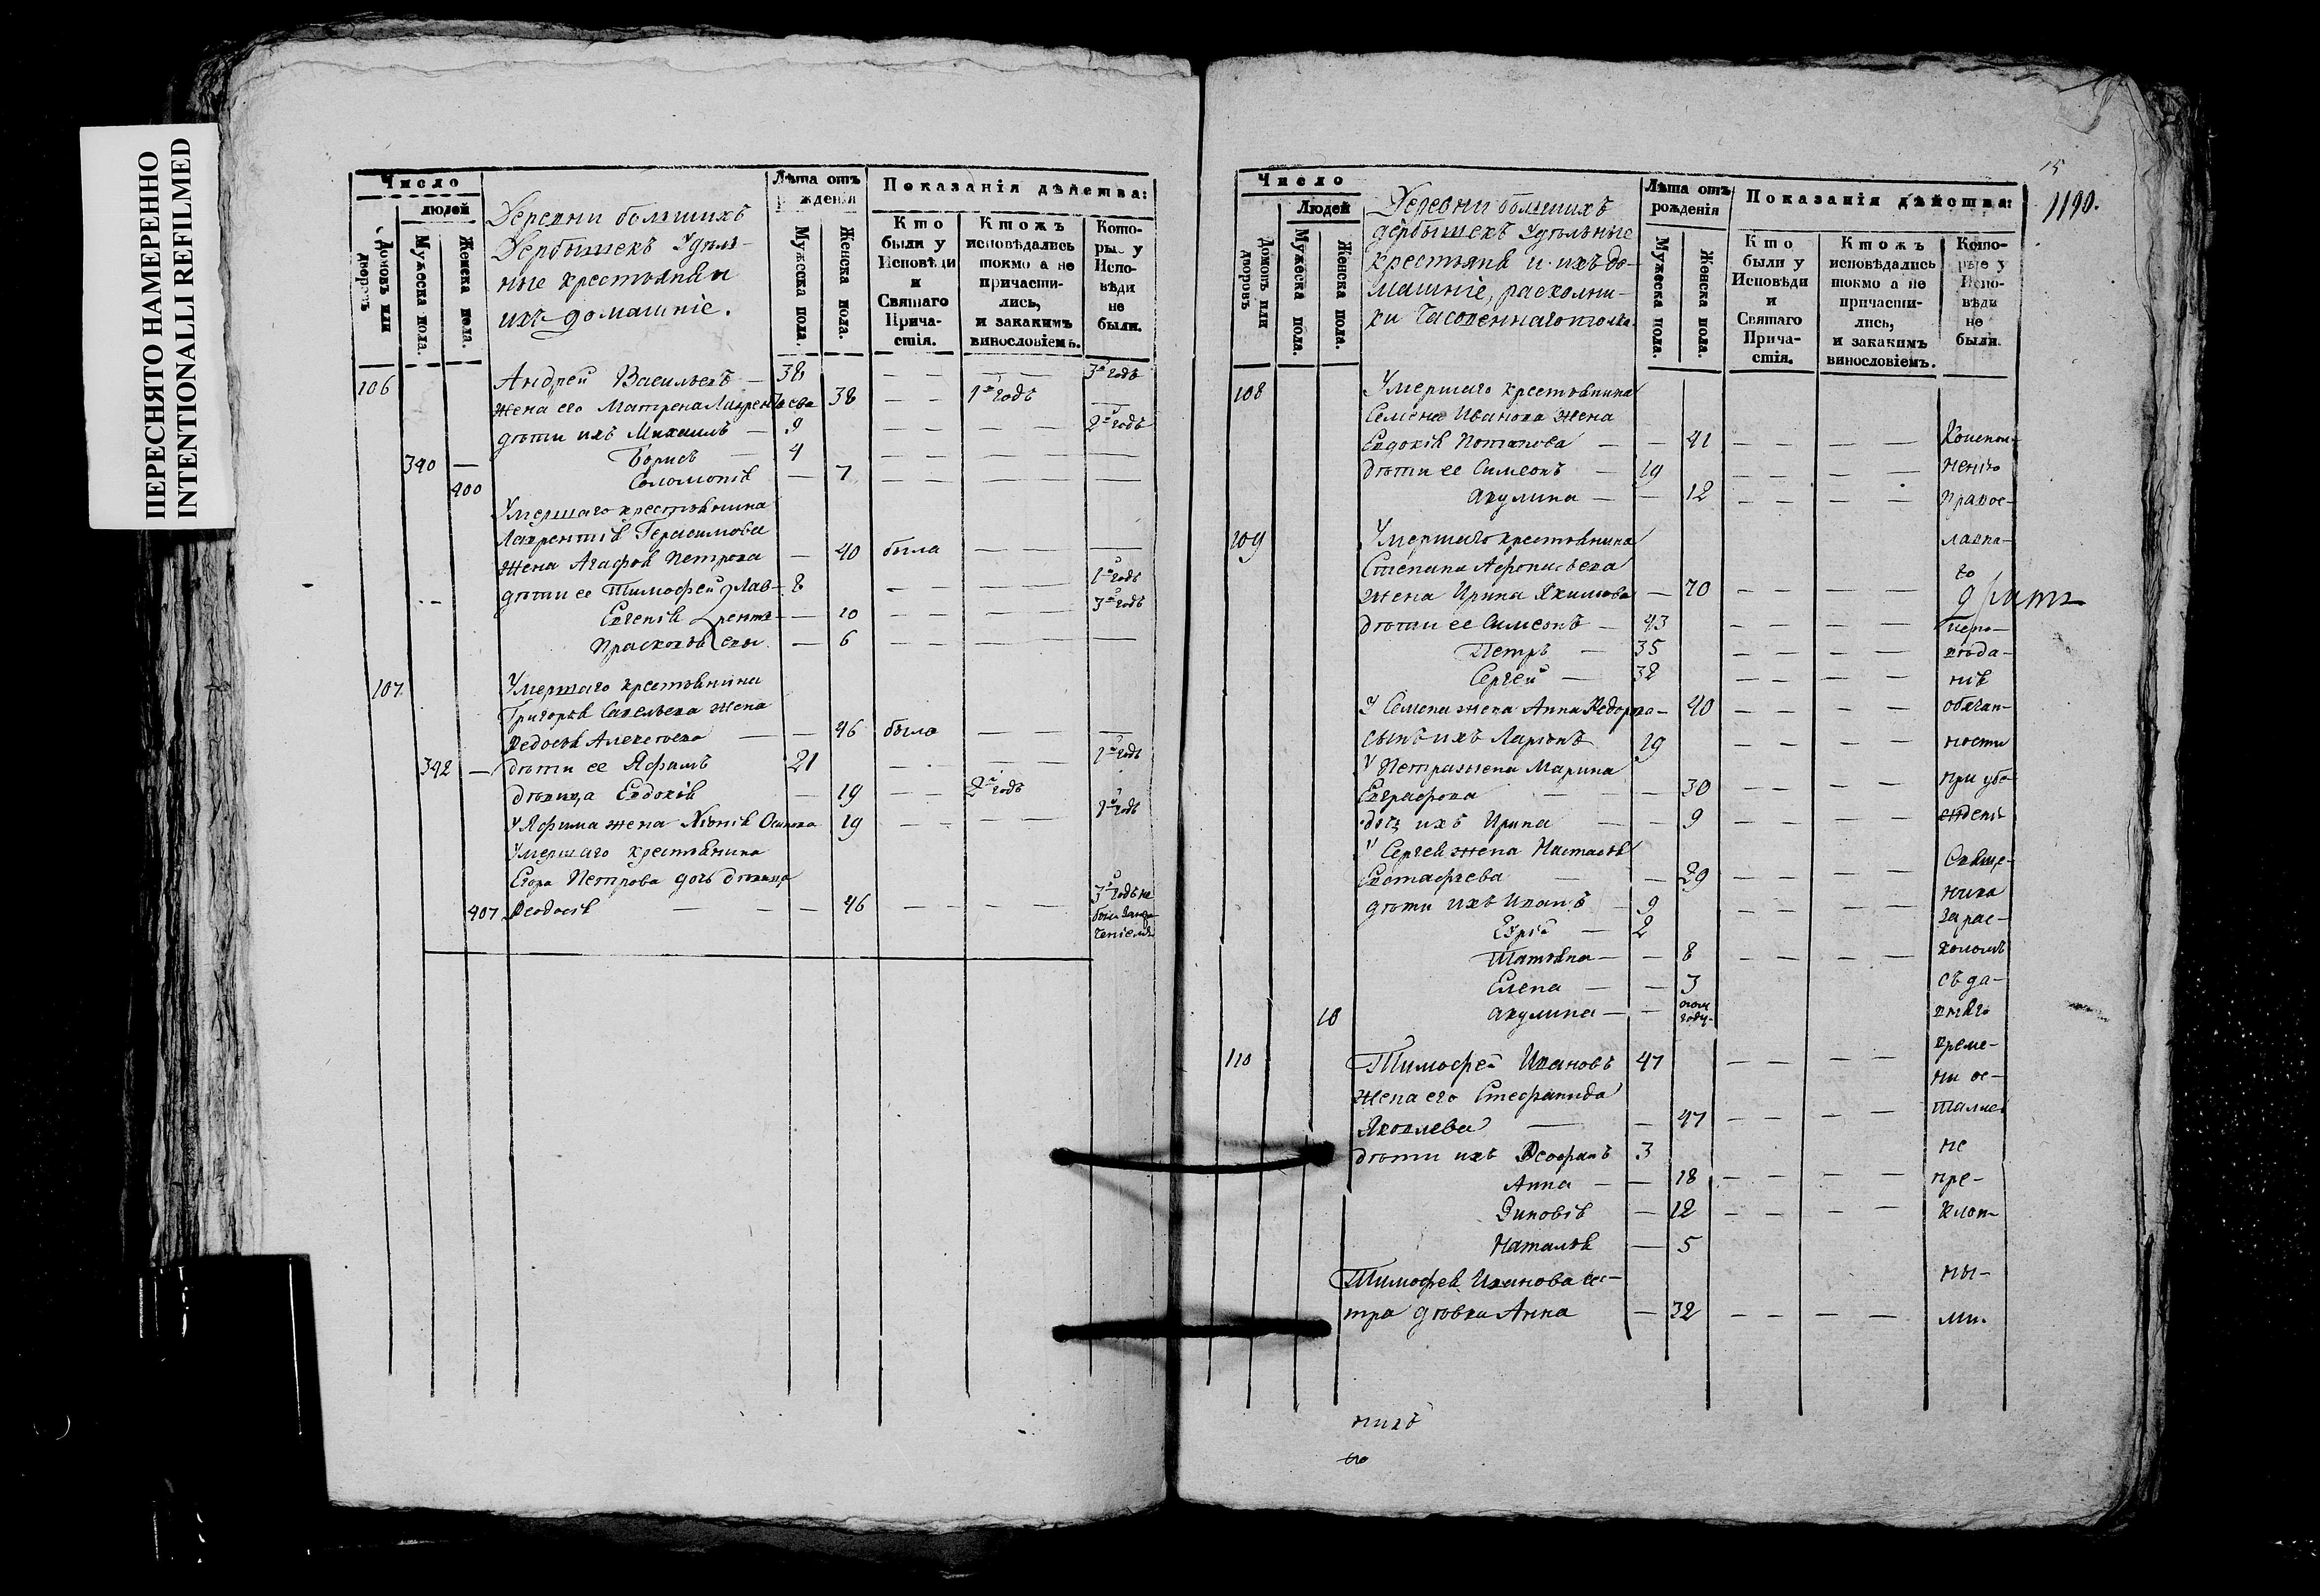 ПЕРЕСНЯТО НАМЕРЕННО
INTENTIONALLI REFILMED
Число
людей
Домовъ или дворовъ
Мужеска пола.
Женска пола.
Деревни большихъ
Дербышекъ Удѣль-
ные крестьяня и
ихъ домашніе.
Лѣта отъ рожденія
Мужеска пола.
Женска пола.
Показанія дѣйства:
Кто были у Исповѣди и Святаго Прича-стія.
Ктожъ исповѣдались токмо а не причасти-лись, и закакимъ винословіемъ.
Кото-рые у Испо-вѣди не были.
106 Андрей Васильевъ — 38 — — — — 3й годъ
жена его Матрена Лаврентьева 38 — — 1й годъ —
дѣти ихъ Михаилъ — 9 — — — — 2й годъ
Борисъ — 4 — — — — —
390 —
400 Соломонія — 7 — — — — —
Умершаго крестьянина
Лаврентія Герасимова
жена Агафья Петрова — 40 была — — —
дѣти ее Тимофей Лав- 8 — — — 1й годъ
Евгенія рентье- — 10 — — — — 3й годъ
Прасковья евы — 6 — — — — —
107 Умершаго крестьянина
Григорья Савельева жена
Ѳедосья Алексѣева — — 46 была — — —
392 — дѣти ее Яфимъ 21 — — — — 1й годъ
дѣвица Евдокія — 19 — — 2й годъ
У Яфима жена Хіонія Осипова 19 — — — — 1й годъ
Умершаго крестьянина
Егора Петрова дочь дѣвица
407 Ѳеодосія — — — 46 — — — — 3й годъ не
была
Число
Людей
Домовъ или дворовъ
Мужеска пола.
Женска пола.
Деревни большихъ
дербышекъ Удѣльные
крестьяня и ихъ до-
машніе, раскольни-
ки Часовеннаго толка.
Лѣта отъ рожденія
Мужеска пола.
Женска пола.
Показанія дѣйства:
Кто были у Исповѣди и Святаго Прича-стія.
Ктожъ исповѣдались токмо а не причасти-лись, и закакимъ винословіемъ.
Кото-рые у Испо-вѣди не были.
15
1190.
108 Умершаго крестьянина
Семена Иванова жена
Евдокія Потапова — — 41 — — — —
дѣти ее Симеонъ — 19 — — — — нению
Акулина — — 12 — — — — правос-
109 Умершаго крестьянина лавна-
Степана Афонасьева го
жена Ирина Якимова — 70 — — — —
дѣти ее Симеонъ — 43 — — — —
Петръ — 35 — — — — повѣда-
Сергей — 32 — — — — нія
У Семена жена Анна Ѳедорова — 40 — — — — обязан-
сынъ ихъ Ларіонъ 19 — — — — ности
У Петра жена Марина при убѣ-
Евграфова — — 30 — — — — жденіи
дочь ихъ Ирина — — 9 — — — —
У Сергея жена Настасья Свяще-
Евстафьева — — 29 — — — — ника
дѣти ихъ Иванъ — 9 — — — — за рас-
— 2 коломъ
Татьяна — — 8 — — — — съ да-
Елена — — 3 вняго
18 Акулина — —
110 Тимофей Ивановъ 47 — — — — време-
жена его Стефанида ни ос-
Яковлева — — 47 — — — — тались
дѣти ихъ Ѳеофанъ 3 не
Анна — — 18 — — — — пре-
Зиновія — 12 — — — — клон-
Наталья — 5
Тимофея Иванова сес- ны-
тра дѣвка Анна — 32 — — — — ми.